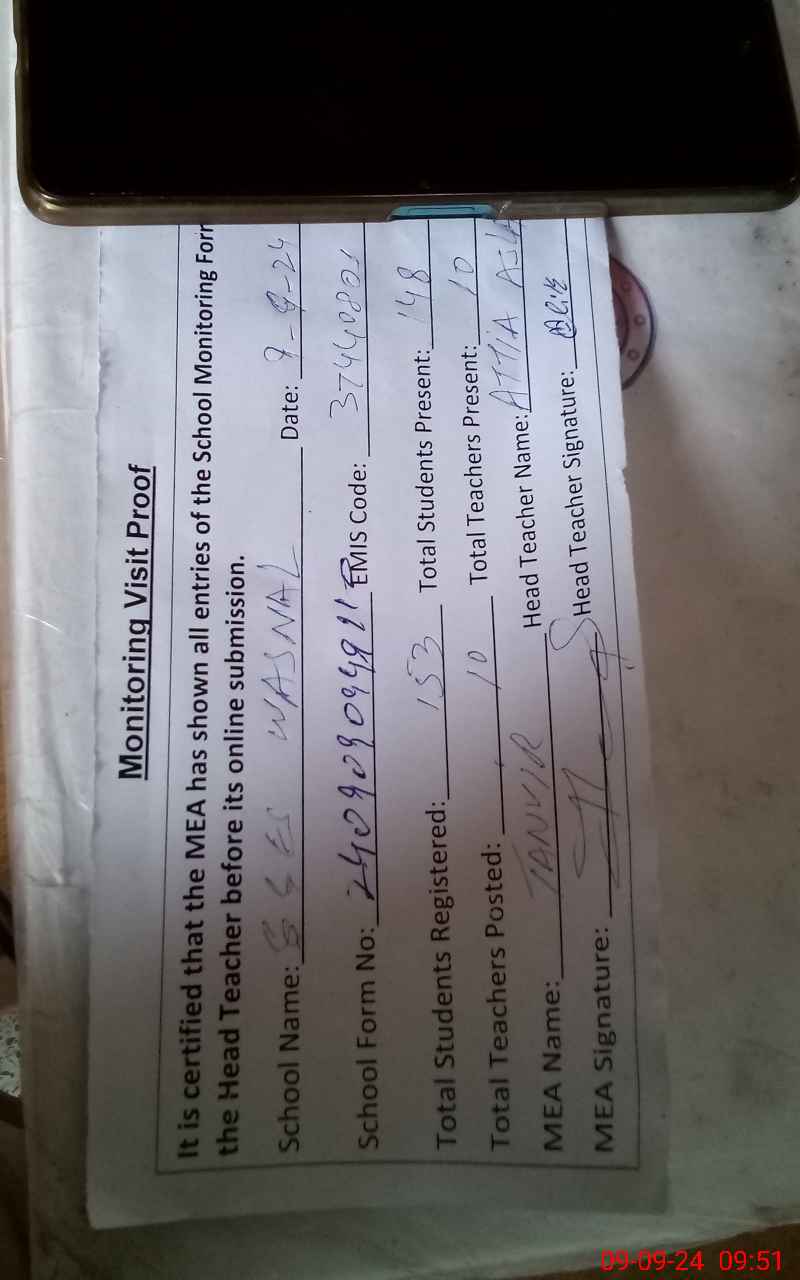 Monitoring Visit Proof
It is certified that the MEA has shown all entries of the School Monitoring For
the Head Teacher before its online submission.
School Name: GGES WASNAL Date: 9-9-24
School Form No: EMIS Code: 37440801
Total Students Registered: 153 Total Students Present: 148
Total Teachers Posted: 10 Total Teachers Present: 10
MEA Name: TANVIR Head Teacher Name: ATTIA ASLA
MEA Signature: Head Teacher Signature:
09-09-24 09:51